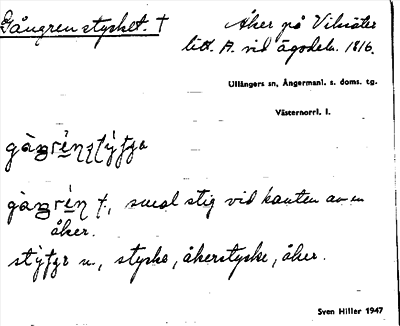 Gångrenstycket. †
Åker på Vilsäter
litt. A. vid ägodeln. 1816.
Ullångers sn, Ångermanl. s. doms. tg.
Västernorrl. l.
smal stig vid kanten av en
åker.
n., stycke, åkerstycke, åker.
Sven Hiller 1947